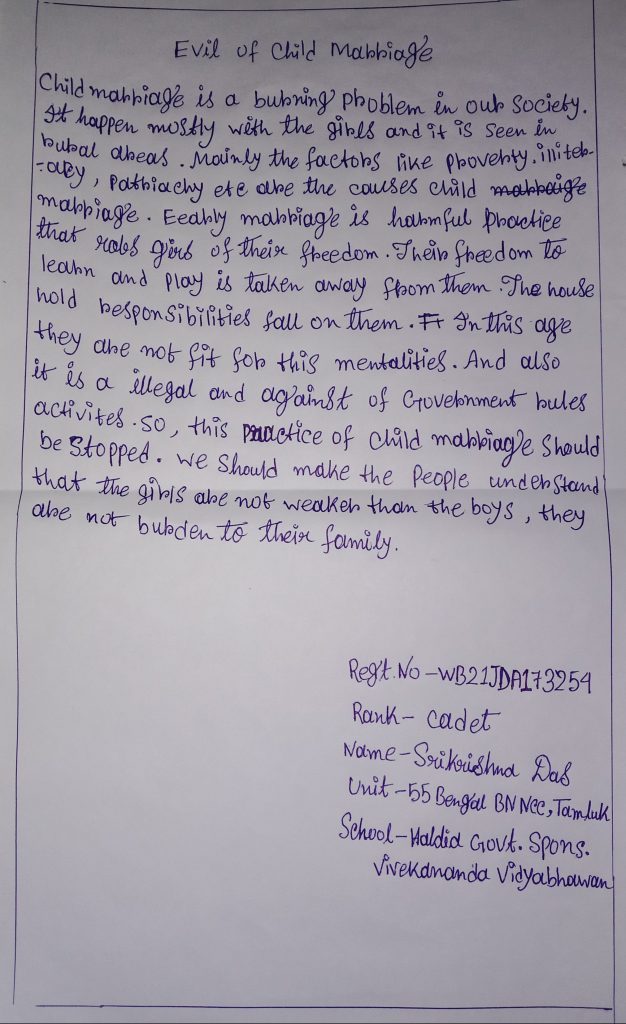 Evil of Child Marriage
Child marriage is a burning problem in our society.
It happen mostly with the girls and it is seen in
rural areas. Mainly the factors like proverty. illiter-
-acy, Patriachy etc are the causes child marraige
marriage. Eearly marriage is harmful practice
that robes girs of their freedom. Their freedom to
learn and play is taken away from them. The house
hold responsibilities fall on them. It In this age
they are not fit for this mentalities. And also
it is a illegal and against of Government rules
activites. so, this practice of child marriage should
be stopped. we should make the people understand
that the girls are not weaker than the boys, they
are not burden to their family.
Regt.No-WB21JDA173254
Rank- cadet
Name-Srikrishna Das
Unit-55 Bengal BN NCC, Tamluk
School-Haldia Govt. Spons.
Vivekananda Vidyabhawan